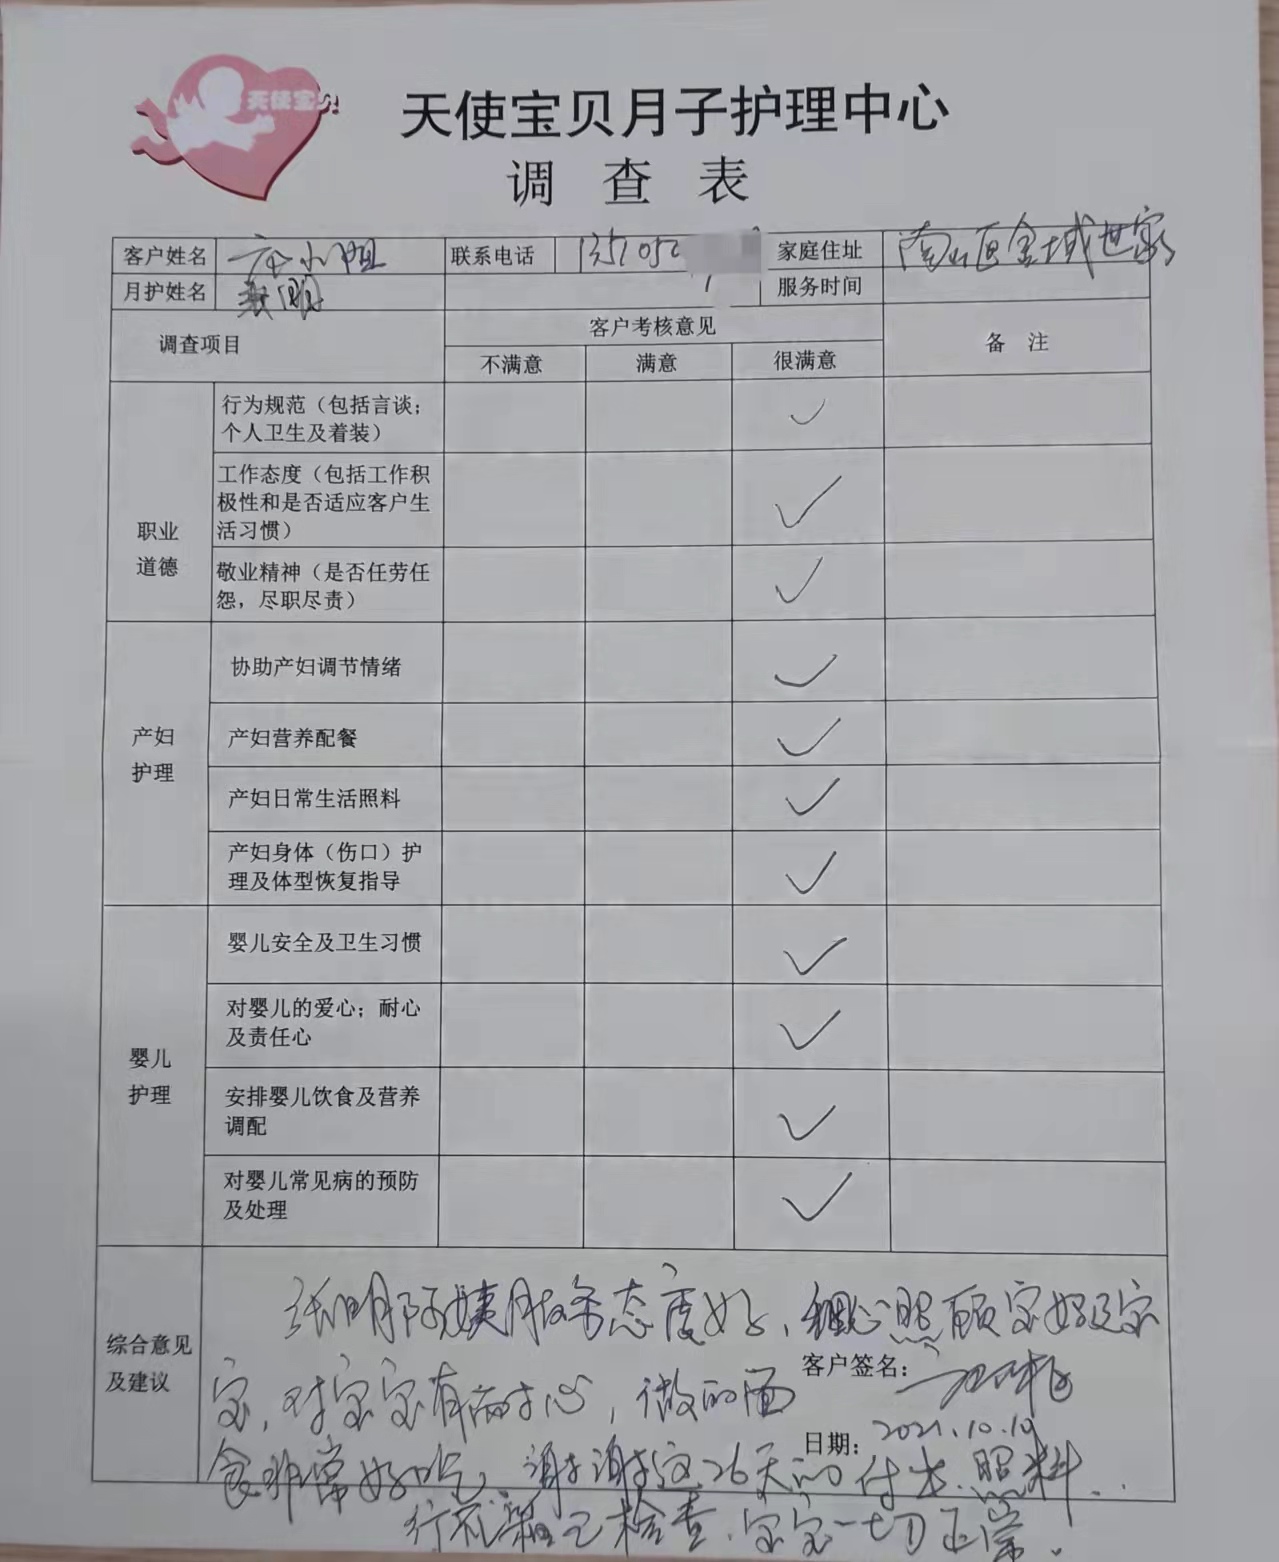 天使宝贝
天使宝贝月子护理中心
调 查 表
客户姓名 小姐 联系电话 1351052 家庭住址 南山区金域世家
月护姓名 张明 服务时间
调查项目 客户考核意见 备 注
不满意 满意 很满意
职业
道德
行为规范（包括言谈；
个人卫生及着装）
工作态度（包括工作积
极性和是否适应客户生
活习惯）
敬业精神（是否任劳任
怨，尽职尽责）
产妇
护理
协助产妇调节情绪
产妇营养配餐
产妇日常生活照料
产妇身体（伤口）护
理及体型恢复指导
婴儿
护理
婴儿安全及卫生习惯
对婴儿的爱心；耐心
及责任心
安排婴儿饮食及营养
调配
对婴儿常见病的预防
及处理
综合意见
及建议
张明阿姨服务态度好，细心照顾宝妈及宝
宝，对宝宝有耐心，做的面
客户签名：
食非常好吃，谢谢这26天的付出、照料.
日期： 2021.10.10
行李箱已检查，宝宝一切正常.